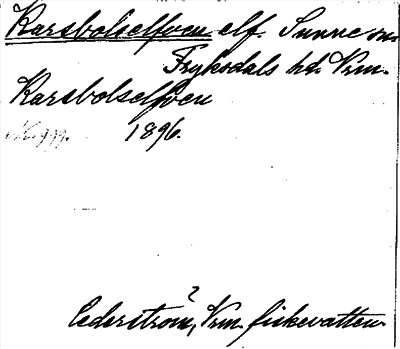 Karsbolselfven elf. Sunne sn.
Fryksdals hd. Vrm.
Karsbolselfven
1896.
?
Cederström, Vrm. fiskevatten.